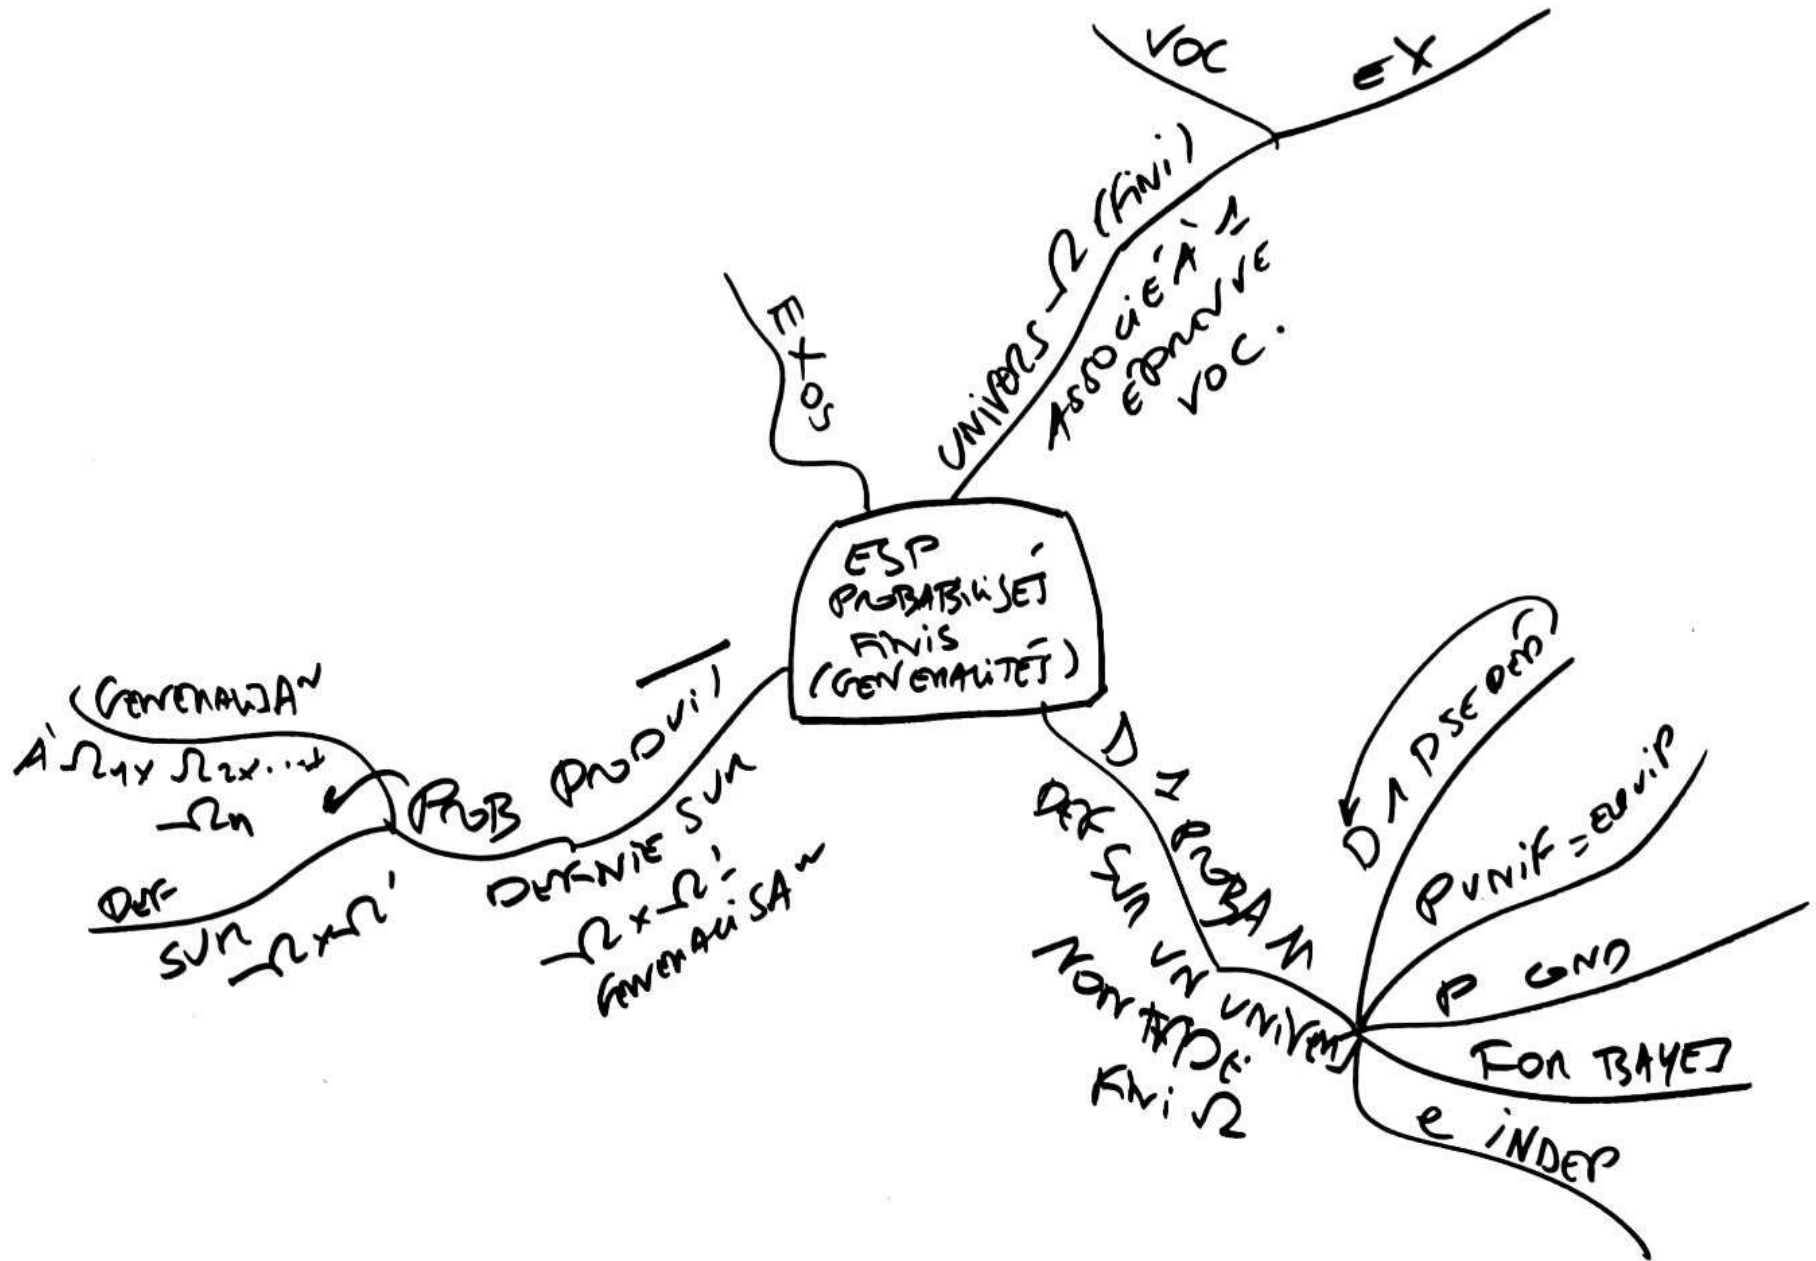 ESP
PROBABILISÉS
FINIS
(GENERALITÉS)
UNIVERS Ω (FINI)
ASSOCIÉ À 1
EPREUVE
VOC.
VOC
EX
1 PROBA
DEF SUR UN UNIVERS
FINI Ω
D 1 P
P UNIF = EQUIP
P COND
FOR BAYES
e INDEP
PROB PRODUIT
DEFINIE SUR
Ω x Ω'
GENERALISAN
(GENERALISAN
À Ω1x Ω2x...x
Ωn
DEF
SUR
Ω x Ω'
EXOS